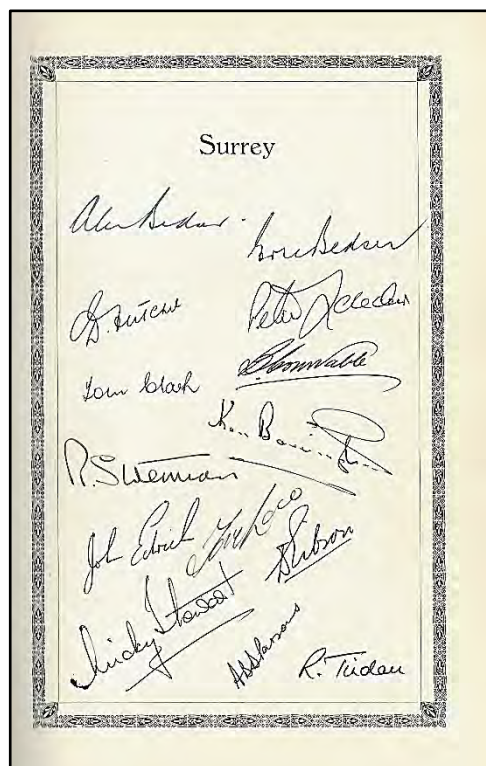 Surrey
Alec Bedser
Eric Bedser
Peter Loader
Tom Clark
B Constable
Ken Barrington
R. Swetman
John Edrich
Tony Lock
D Gibson
Micky Stewart
A B D Parsons
R. Tindall